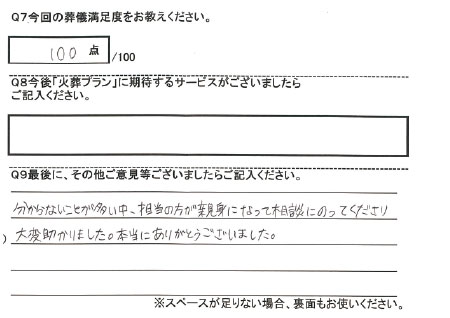 Q7今回の葬儀満足度をお教えください。
100 点 /100
Q8今後「火葬プラン」に期待するサービスがございましたら
ご記入ください。
Q9最後に、その他ご意見等ございましたらご記入ください。
分からないことが多い中、相当の方が親身になって相談にのってくださり
大変助かりました。本当にありがとうございました。
※スペースが足りない場合、裏面もお使いください。